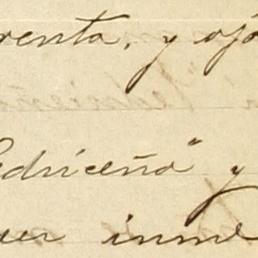 renta, y oja
edriceña" y
uer inme